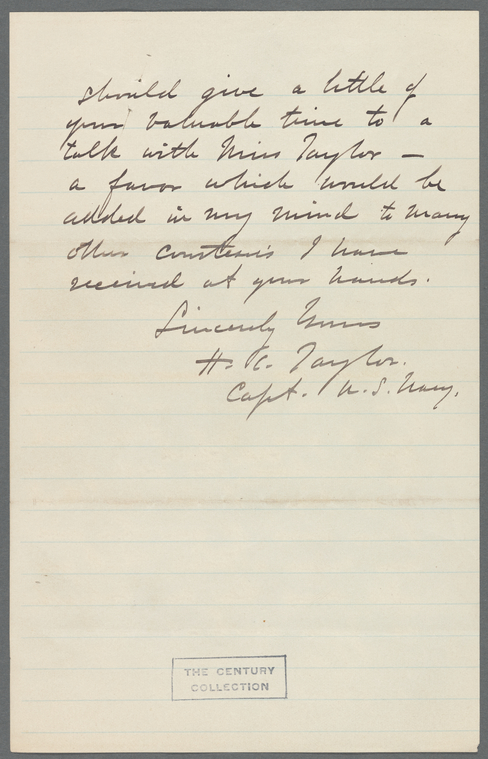 should give a little of
your valuable time to a
talk with Miss Taylor —
a favor which would be
added in my mind to many
other courtesies I have
received at your hands.
Sincerely Yours
H. C. Taylor.
Capt. U. S. Navy.
THE CENTURY
COLLECTION